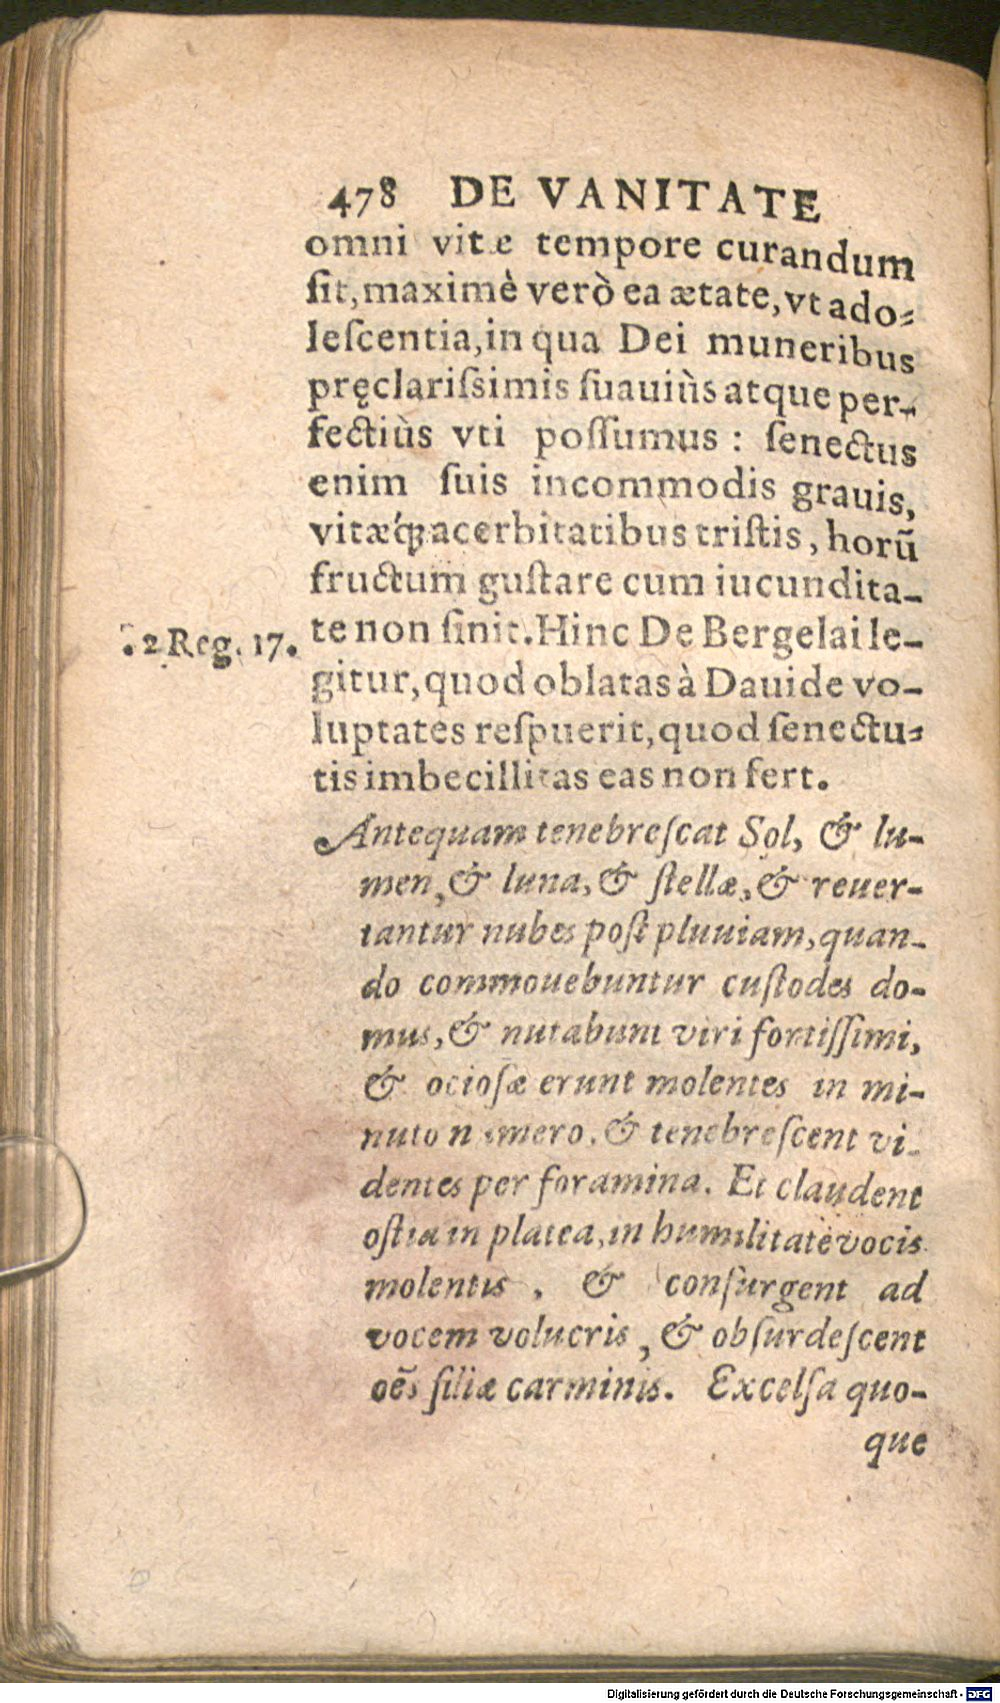 478 DE VANITATE
omni vitæ tempore curandum
ſit, maximè verò ea ætate, vt ado-
leſcentia, in qua Dei muneribus
pręclariſsimis ſuauiùs atque per-
fectiùs vti poſſumus : ſenectus
enim ſuis incommodis grauis,
vitæq́; acerbitatibus triſtis, horũ
fructum guſtare cum iucundita-
te non ſinit. Hinc De Bergelai le-
.2 Reg. 17.
gitur, quod oblatas à Dauide vo-
luptates reſpuerit, quod ſenectu-
tis imbecillitas eas non fert.
Antequam tenebreſcat Sol, & lu-
men, & luna, & ſtellæ, & reuer-
tantur nubes poſt pluuiam, quan-
do commouebuntur cuſtodes do-
mus, & nutabunt viri fortiſſimi,
& ocioſæ erunt molentes in mi-
nuto numero. & tenebreſcent vi-
dentes per foramina. Et claudent
oſtia in platea, in humilitate vocis
molentis . & conſurgent ad
vocem volucris, & obſurdeſcent
oẽs filiæ carminis. Excelſa quo-
que
Digitalisierung gefördert durch die Deutsche Forschungsgemeinschaft - DFG